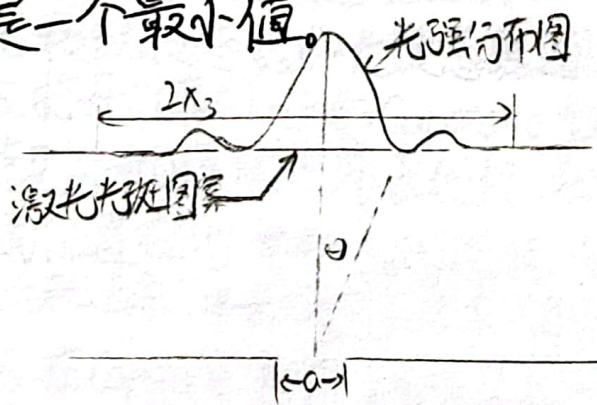 是一个最小值。
光强分布图
2x₃
激光光斑图案
θ
|←a→|